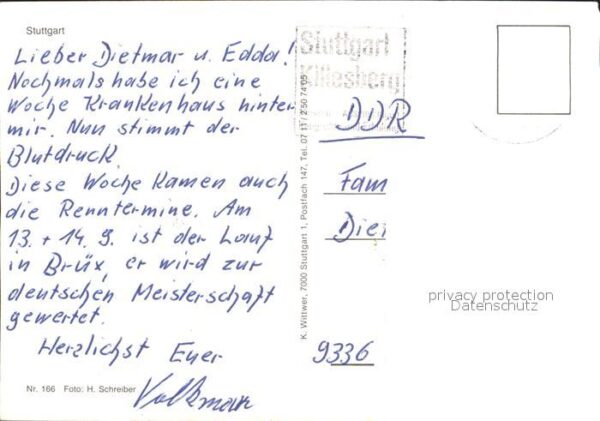 Stuttgart
Lieber Dietmar u. Edda!
Nochmals habe ich eine
Woche Krankenhaus hinter
mir. Nun stimmt der
Blutdruck.
Diese Woche kamen auch
die Renntermine. Am
13. + 14. 9. ist der Lauf
in Brüx, er wird zur
deutschen Meisterschaft
gewertet.
Herzlichst Euer
Volkmar
Nr. 166 Foto: H. Schreiber
K. Wittwer, 7000 Stuttgart 1, Postfach 147, Tel. 07 11 / 2 50 74 05
Stuttgart
Killesberg
DDR
Fam
Diet
9336
privacy protection
Datenschutz